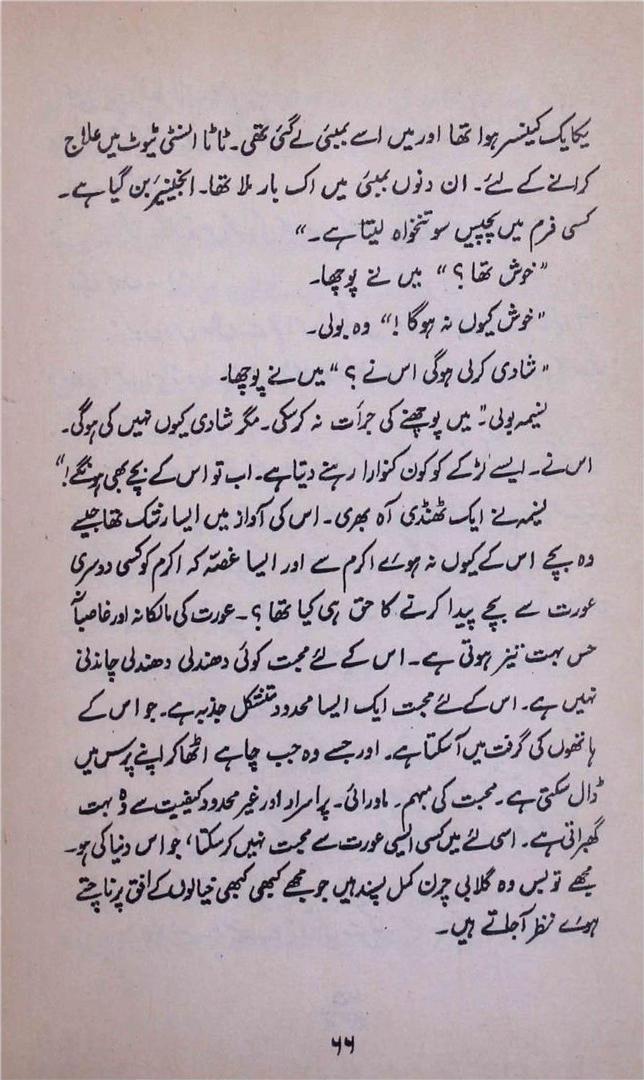 یکایک کینسر ہوا تھا اور میں اسے بمبئی لے گئی تھی۔ ٹاٹا انسٹی ٹیوٹ میں علاج
کرانے کے لئے۔ ان دنوں بمبئی میں اک بار ملا تھا۔ انجینیئر بن گیا ہے۔
کسی فرم میں پچیس سو تنخواہ لیتا ہے۔"
"خوش تھا؟" میں نے پوچھا۔
"خوش کیوں نہ ہوگا!" وہ بولی۔
"شادی کرلی ہوگی اس نے؟" میں نے پوچھا۔
نسیمہ بولی۔ "میں پوچھنے کی جرأت نہ کرسکی۔ مگر شادی کیوں نہیں کی ہوگی۔
اس نے۔ ایسے لڑکے کو کون کنوارا رہنے دیتا ہے۔ اب تو اس کے بچے بھی ہونگے!"
نسیمہ نے ایک ٹھنڈی آہ بھری۔ اس کی آواز میں ایسا رشک تھا جیسے
وہ بچے اس کے کیوں نہ ہوئے اکرم سے اور ایسا غصّہ کہ اکرم کو کسی دوسری
عورت سے بچے پیدا کرنے کا حق ہی کیا تھا؟۔ عورت کی مالکانہ اور غاصبانہ
حس بہت تیز ہوتی ہے۔ اس کے لئے محبت کوئی دھندلی دھندلی چاندنی
نہیں ہے۔ اس کے لئے محبت ایک ایسا محدود متشکل جذبہ ہے۔ جو اس کے
ہاتھوں کی گرفت میں آسکتا ہے۔ اور جسے وہ جب چاہے اٹھا کر اپنے پرس میں
ڈال سکتی ہے۔ محبت کی مبہم۔ ماورائی۔ پراسرار اور غیر محدود کیفیت سے وہ بہت
گھبراتی ہے۔ اسی لئے میں کسی ایسی عورت سے محبت نہیں کرسکتا، جو اس دنیا کی ہو۔
مجھے تو بس وہ گلابی چرن کمل پسند ہیں جو مجھے کبھی کبھی خیالوں کے افق پر ناچتے
ہوئے نظر آجاتے ہیں۔
۶۶